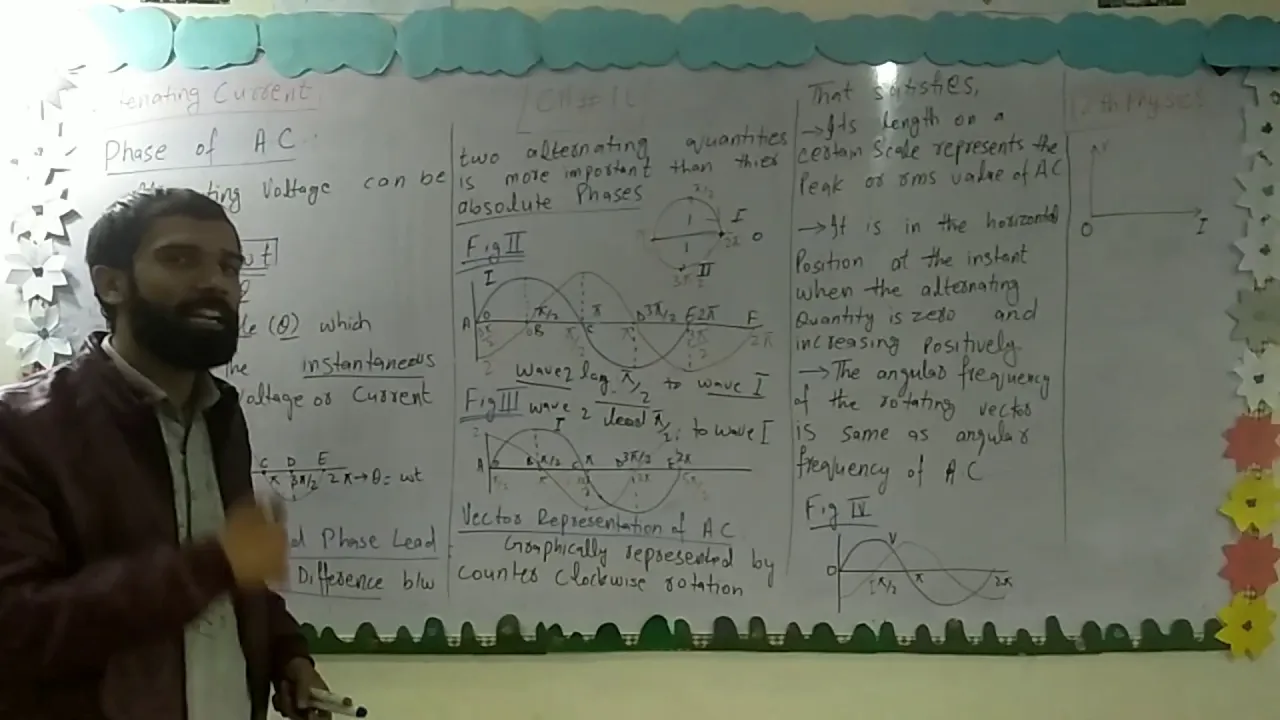 tenating Current
CH # 16
12th Physics
Phase of AC
ting Voltage can be
wt
le (θ) which
the instantaneous
Voltage or Current
C D E
π 3π/2 2π → θ = wt
d Phase Lead
Difference b/w
two alternating quantities
is more important than thier
absolute Phases
π/2
I
1
1
2π O
3π/2 II
Fig II
I
A O π/2 π D 3π/2 E 2π F
B C
wave 2 lag π/2 to wave I
Fig III wave 2 lead π/2 to wave I
I
A π/2 π 3π/2 2π
Vector Representation of AC
Graphically represented by
counter clockwise rotation
That satisfies,
→ Its length on a
certain scale represents the
Peak or rms value of AC
→ It is in the horizontal
Position at the instant
when the alternating
Quantity is zero and
increasing positively
→ The angular frequency
of the rotating vector
is same as angular
frequency of AC
Fig IV
V
O I π/2 π 2π
V
O I